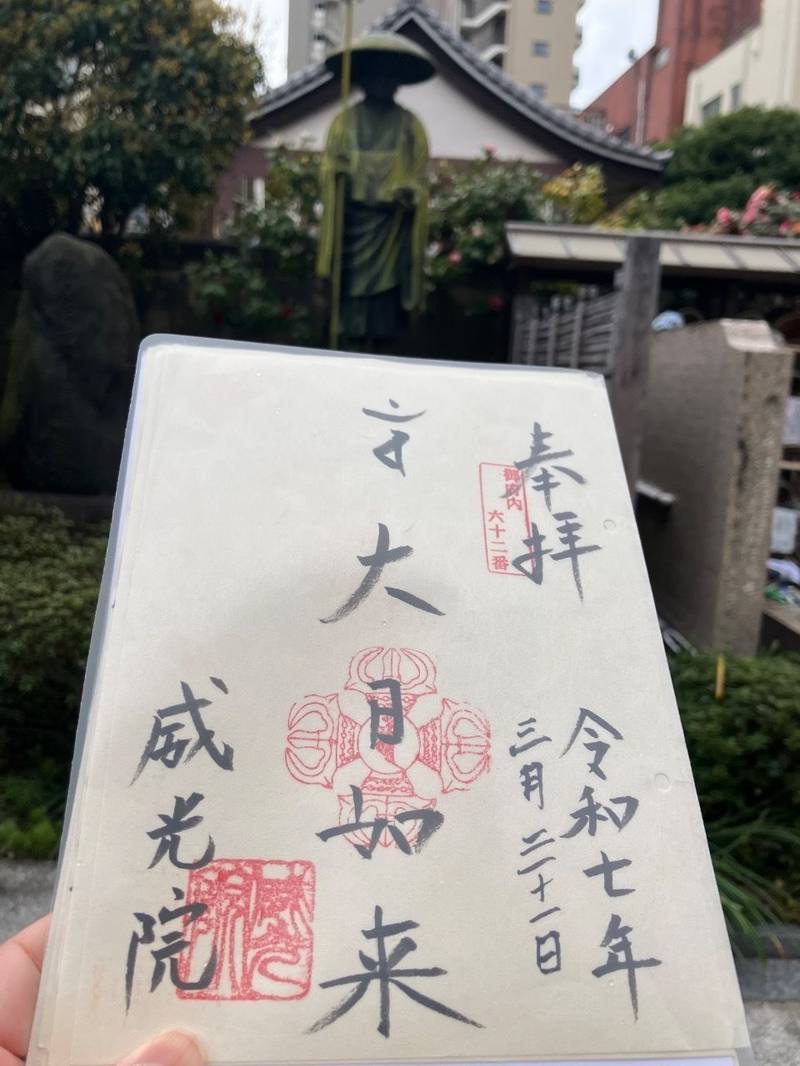 奉拝
御府内
六十二番
令和七年
三月二十一日
大日如来
威光院